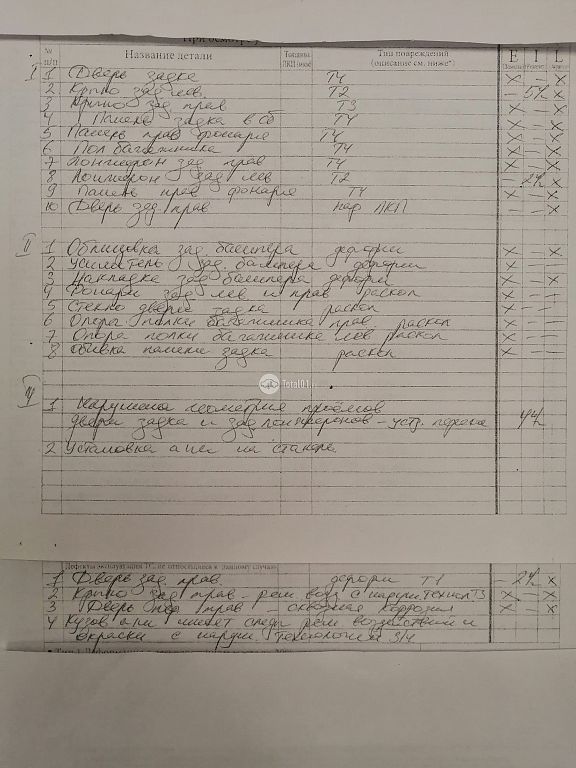 При осмотре
№ п/п Название детали Тип повреждений (описание см. ниже*) E I L
I 1 Дверь задка Т4 X — X
2 Крыло зад лев. Т2 — 5ч X
3 Крыло зад прав Т3 X — X
4 Панель задка в сб Т4 X — X
5 Панель прав фонаря Т4 X — X
6 Пол багажника Т4 X — X
7 Лонжерон зад прав Т4 X — X
8 Лонжерон зад лев Т2 — 2ч X
9 Панель прав фонаря Т4 X — X
10 Дверь зад прав нар ЛКП — — X
II 1 Облицовка зад бампера деформ X — X
2 Усилитель зад. бампера деформ X —
3 Накладка зад бампера деформ X — X
4 Фонари зад лев и прав раскол X — —
5 Стекло двери задка раскол X —
6 Опора полки багажника прав раскол X — —
7 Опора полки багажника лев раскол X — —
8 Обивка панели задка раскол X — —
Total01
1 Нарушена геометрия проёмов
двери задка и зад лонжеронов - устр. перекоса 4ч
2 Установка а/м на стапель
Дефекты эксплуатации ТС, не относящиеся к данному случаю
1 Дверь зад прав. деформ Т1 — 2ч X
2 Крыло зад прав - рем возд с наруш технол Т3 X — X
3 Дверь прав - сквозная коррозия X — X
4 Кузов а/м имеет следы рем воздействий и
окраски с наруш. технологии З/Ч